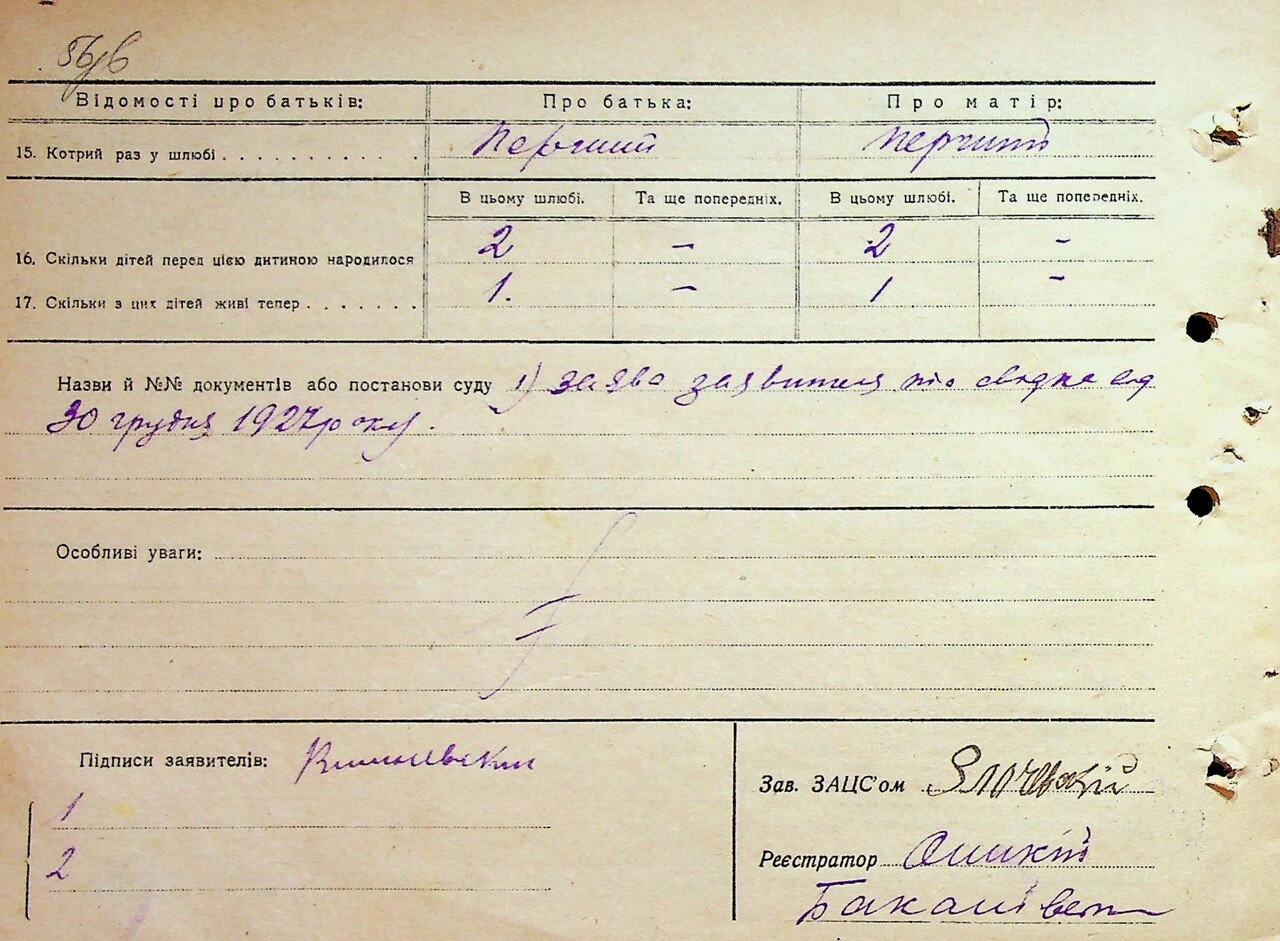 56/в
Відомості про батьків: Про батька: Про матір:
15. Котрий раз у шлюбі . . . . . . . . . . . . Перший перший
В цьому шлюбі. Та ще попередніх. В цьому шлюбі. Та ще попередніх.
16. Скільки дітей перед цією дитиною народилося 2 – 2 –
17. Скільки з цих дітей живі тепер . . . . . . . 1. – 1 –
Назви й №№ документів або постанови суду 1) заява заявителя
30 грудня 1927 року.
Особливі уваги:
Підписи заявителів:
1
2
Зав. ЗАЦС'ом
Реєстратор